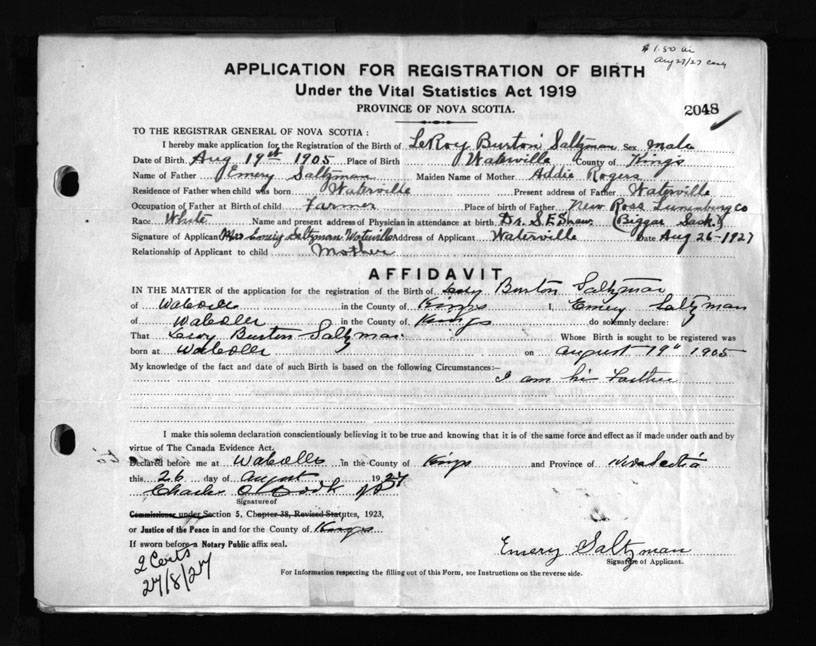 $1.50
Aug 27/27
APPLICATION FOR REGISTRATION OF BIRTH
Under the Vital Statistics Act 1919
PROVINCE OF NOVA SCOTIA.
2048
TO THE REGISTRAR GENERAL OF NOVA SCOTIA :
I hereby make application for the Registration of the Birth of LeRoy Burton Saltzman Sex male
Date of Birth Aug 19th 1905 Place of Birth Waterville County of Kings
Name of Father Emery Saltzman Maiden Name of Mother Addie Rogers
Residence of Father when child was born Waterville Present address of Father Waterville
Occupation of Father at Birth of child Farmer Place of birth of Father New Ross Lunenburg Co
Race White Name and present address of Physician in attendance at birth Dr. S.E. Shaw (Biggar Sask.)
Signature of Applicant Mrs Emery Saltzman Waterville Address of Applicant Waterville Date Aug 26-1927
Relationship of Applicant to child Mother
AFFIDAVIT
IN THE MATTER of the application for the registration of the Birth of Burton Saltzman
of in the County of Kings I, Emery Saltzman
of in the County of Kings do solemnly declare:
That Leroy Burton Saltzman Whose Birth is sought to be registered was
born at on August 19th 1905
My knowledge of the fact and date of such Birth is based on the following Circumstances:—
I am his Father
I make this solemn declaration conscientiously believing it to be true and knowing that it is of the same force and effect as if made under oath and by
virtue of The Canada Evidence Act.
Declared before me at in the County of Kings and Province of Nova Scotia
this 26 day of August 1927
Charles Cook J P
Signature of
Commissioner under Section 5, Chapter 38, Revised Statutes, 1923,
or Justice of the Peace in and for the County of Kings
If sworn before a Notary Public affix seal.
2 Cents
27/8/27
Emery Saltzman
Signature of Applicant.
For Information respecting the filling out of this Form, see Instructions on the reverse side.